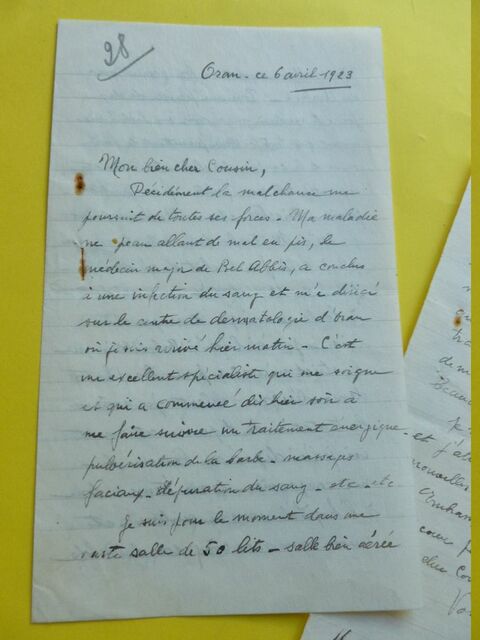 28
Oran - ce 6 avril 1923
Mon bien cher Cousin,
Décidément la malchance me
poursuit de toutes ses forces - Ma maladie
de peau allant de mal en pis, le
médecin major de Bel Abbès, a conclu
à une infection du sang et m'a dirigé
sur le centre de dermatologie d'Oran
où je suis arrivé hier matin - C'est
un excellent spécialiste qui me soigne
et qui a commencé dès hier soir à
me faire suivre un traitement énergique -
pulvérisation de la barbe - massages
faciaux - dépuration du sang - etc - etc
Je suis pour le moment dans une
vaste salle de 50 lits - salle bien aérée
Je
et j'ai
nouvelles
coeur
du